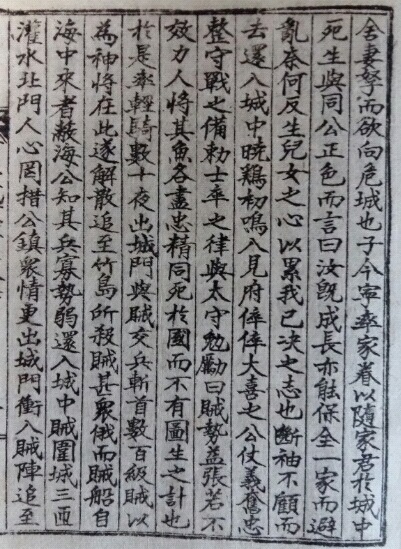 舍妻孥而欲向危城也子今寧率家眷以隨家君於城中
死生與同公正色而言曰汝旣成長亦能保全一家而避
亂奈何反生兒女之心以累我已决之志也斷袖不顧而
去還入城中曉鷄初鳴入見府倅倅大喜之公仗義奮忠
整守戰之備勅士卒之律與太守勉勵曰賊勢益張若不
效力人將其魚各盡忠精同死於國而不有圖生之計也
於是率輕騎數十夜出城門與賊交兵斬首數百級賊以
為神將在此遂解散追至竹島所殺賊甚衆俄而賊船自
海中來者蔽海公知其兵寡勢弱還入城中賊圍城三匝
灌水北門人心罔措公鎮衆情更出城門衝入賊陣追至